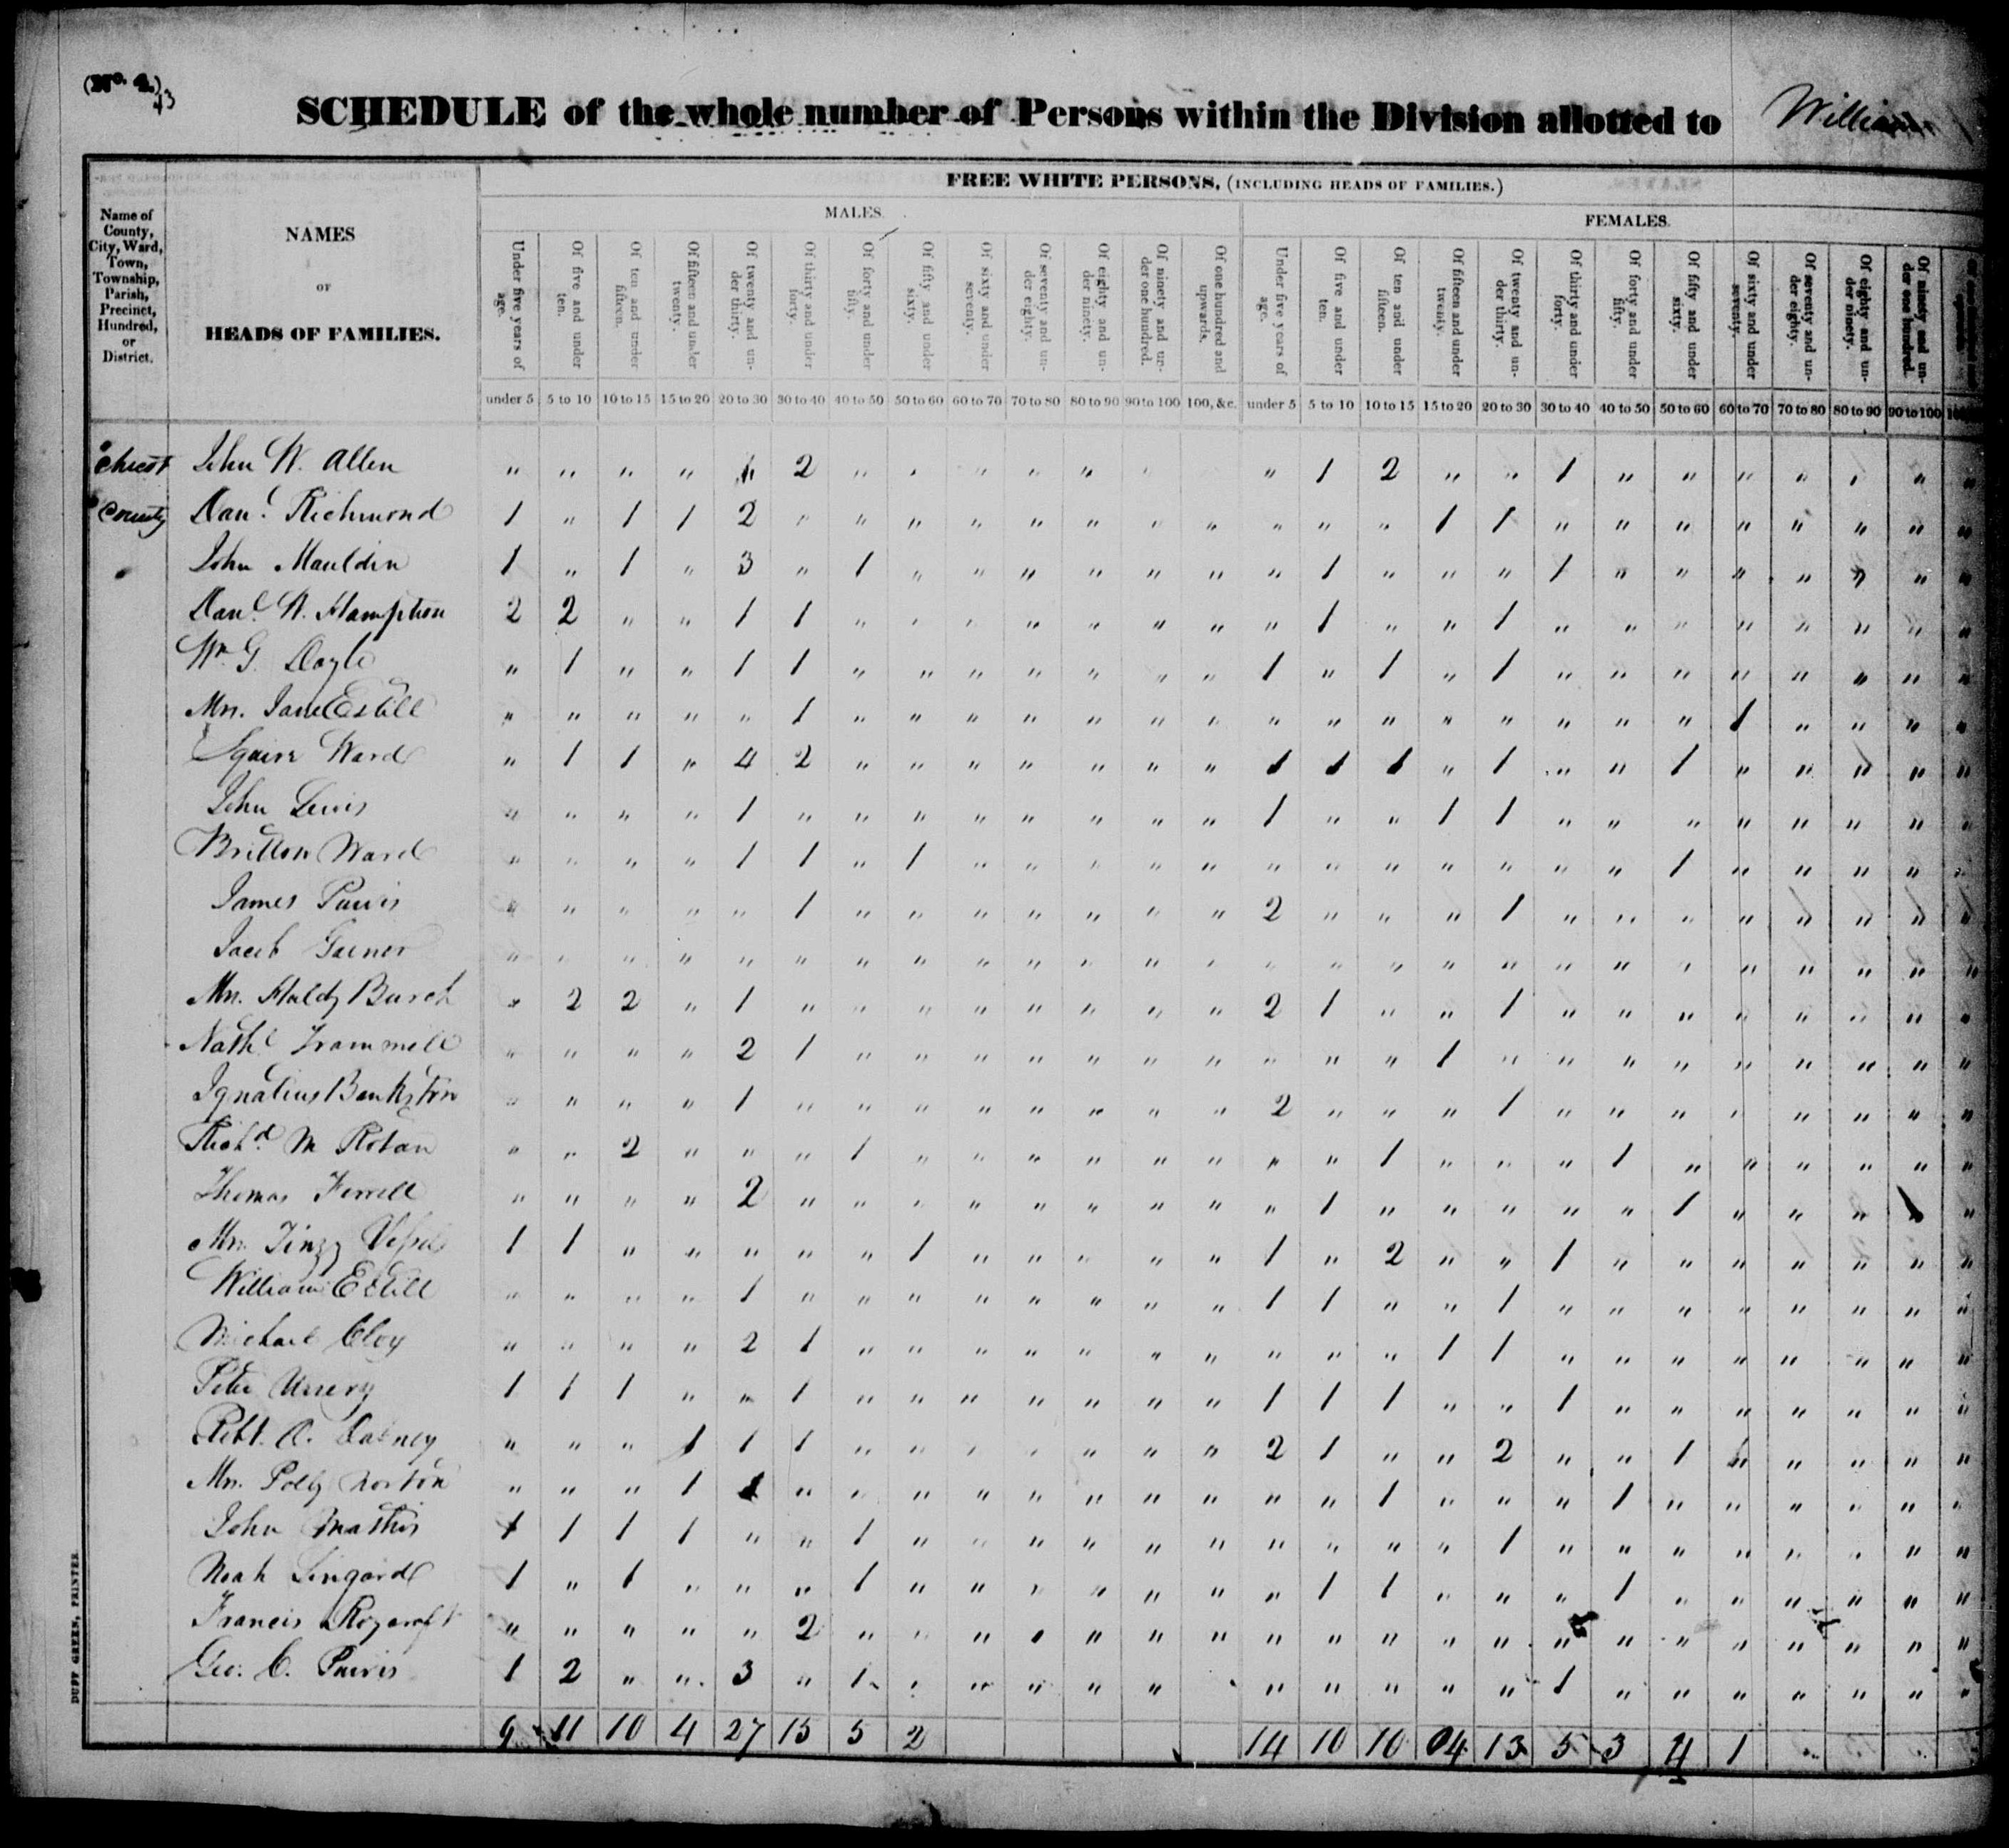 (No. 4.)
43
SCHEDULE of the whole number of Persons within the Division allotted to William
Name of County, City, Ward, Town, Township, Parish, Precinct, Hundred, or District.
NAMES
OF
HEADS OF FAMILIES.
FREE WHITE PERSONS, (INCLUDING HEADS OF FAMILIES.)
MALES.
FEMALES.
Under five years of age. Of five and under ten. Of ten and under fifteen. Of fifteen and under twenty. Of twenty and under thirty. Of thirty and under forty. Of forty and under fifty. Of fifty and under sixty. Of sixty and under seventy. Of seventy and under eighty. Of eighty and under ninety. Of ninety and under one hundred. Of one hundred and upwards. Under five years of age. Of five and under ten. Of ten and under fifteen. Of fifteen and under twenty. Of twenty and under thirty. Of thirty and under forty. Of forty and under fifty. Of fifty and under sixty. Of sixty and under seventy. Of seventy and under eighty. Of eighty and under ninety. Of ninety and under one hundred.
under 5 5 to 10 10 to 15 15 to 20 20 to 30 30 to 40 40 to 50 50 to 60 60 to 70 70 to 80 80 to 90 90 to 100 100, &c. under 5 5 to 10 10 to 15 15 to 20 20 to 30 30 to 40 40 to 50 50 to 60 60 to 70 70 to 80 80 to 90 90 to 100
Chicot John W. Allen 1 2 1 2 1
County Danl. Richmond 1 1 1 2 1 1
John Mauldin 1 1 3 1 1 1
Danl. W. Hamption 2 2 1 1 1 1
Wm G. Doyle 1 1 1 1 1 1
Mrs. Jane Estill 1 1
Squire Ward 1 1 4 2 1 1 1 1 1
John Lewis 1 1 1 1
Britton Ward 1 1 1 1
James Purvis 1 2 1
Jacob
Mrs. Huldy Burch 2 2 1 2 1 1
Nathl Trammell 2 1 1
Ignatius Bankston 1 2 1
Richd. M 2 1 1 1
Thomas Ferrell 2 1 1 1
Mrs. 1 1 1 1 2 1
William Estill 1 1 1 1
Michael Cloy 2 1 1 1
Peter Ussery 1 1 1 1 1 1 1 1
Robt. A. Dabney 1 1 1 2 1 2 1
Mrs. Polly Norton 1 1 1 1
John Mathis 1 1 1 1 1 1
Noah Lingard 1 1 1 1 1 1
Francis Roycroft 2
Geo. C. Purvis 1 2 3 1 1
9 11 10 4 27 15 5 2 14 10 10 04 13 5 3 4 1
DUFF GREEN, PRINTER